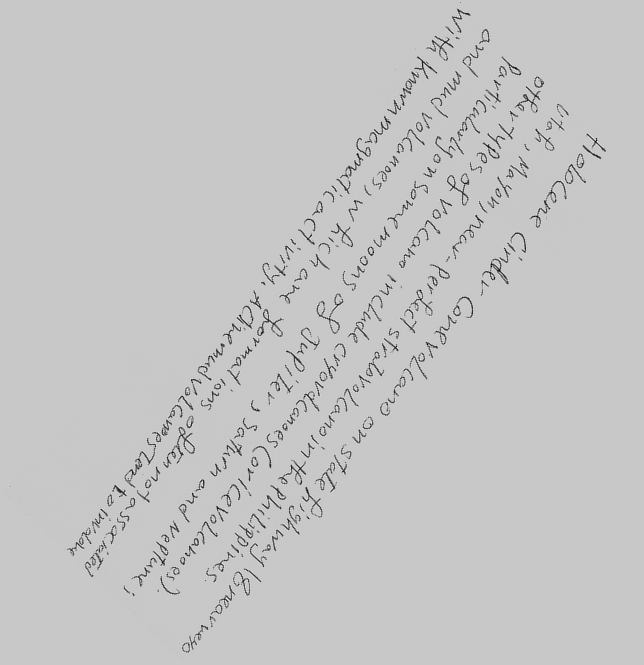 Holocene Cinder Cone volcano on state highway 18 near veyo
utah, Mayon, near-Perfect stratovolcano in the Philippines.
other types of volcano include cryovolcanoes (or ice volcanoes).
Particularly on some moons of Jupiter, Saturn and Neptune;
and mud volcanoes, which are formations often not associated
with known magmatic activity. Active mud volcanoes tend to involve